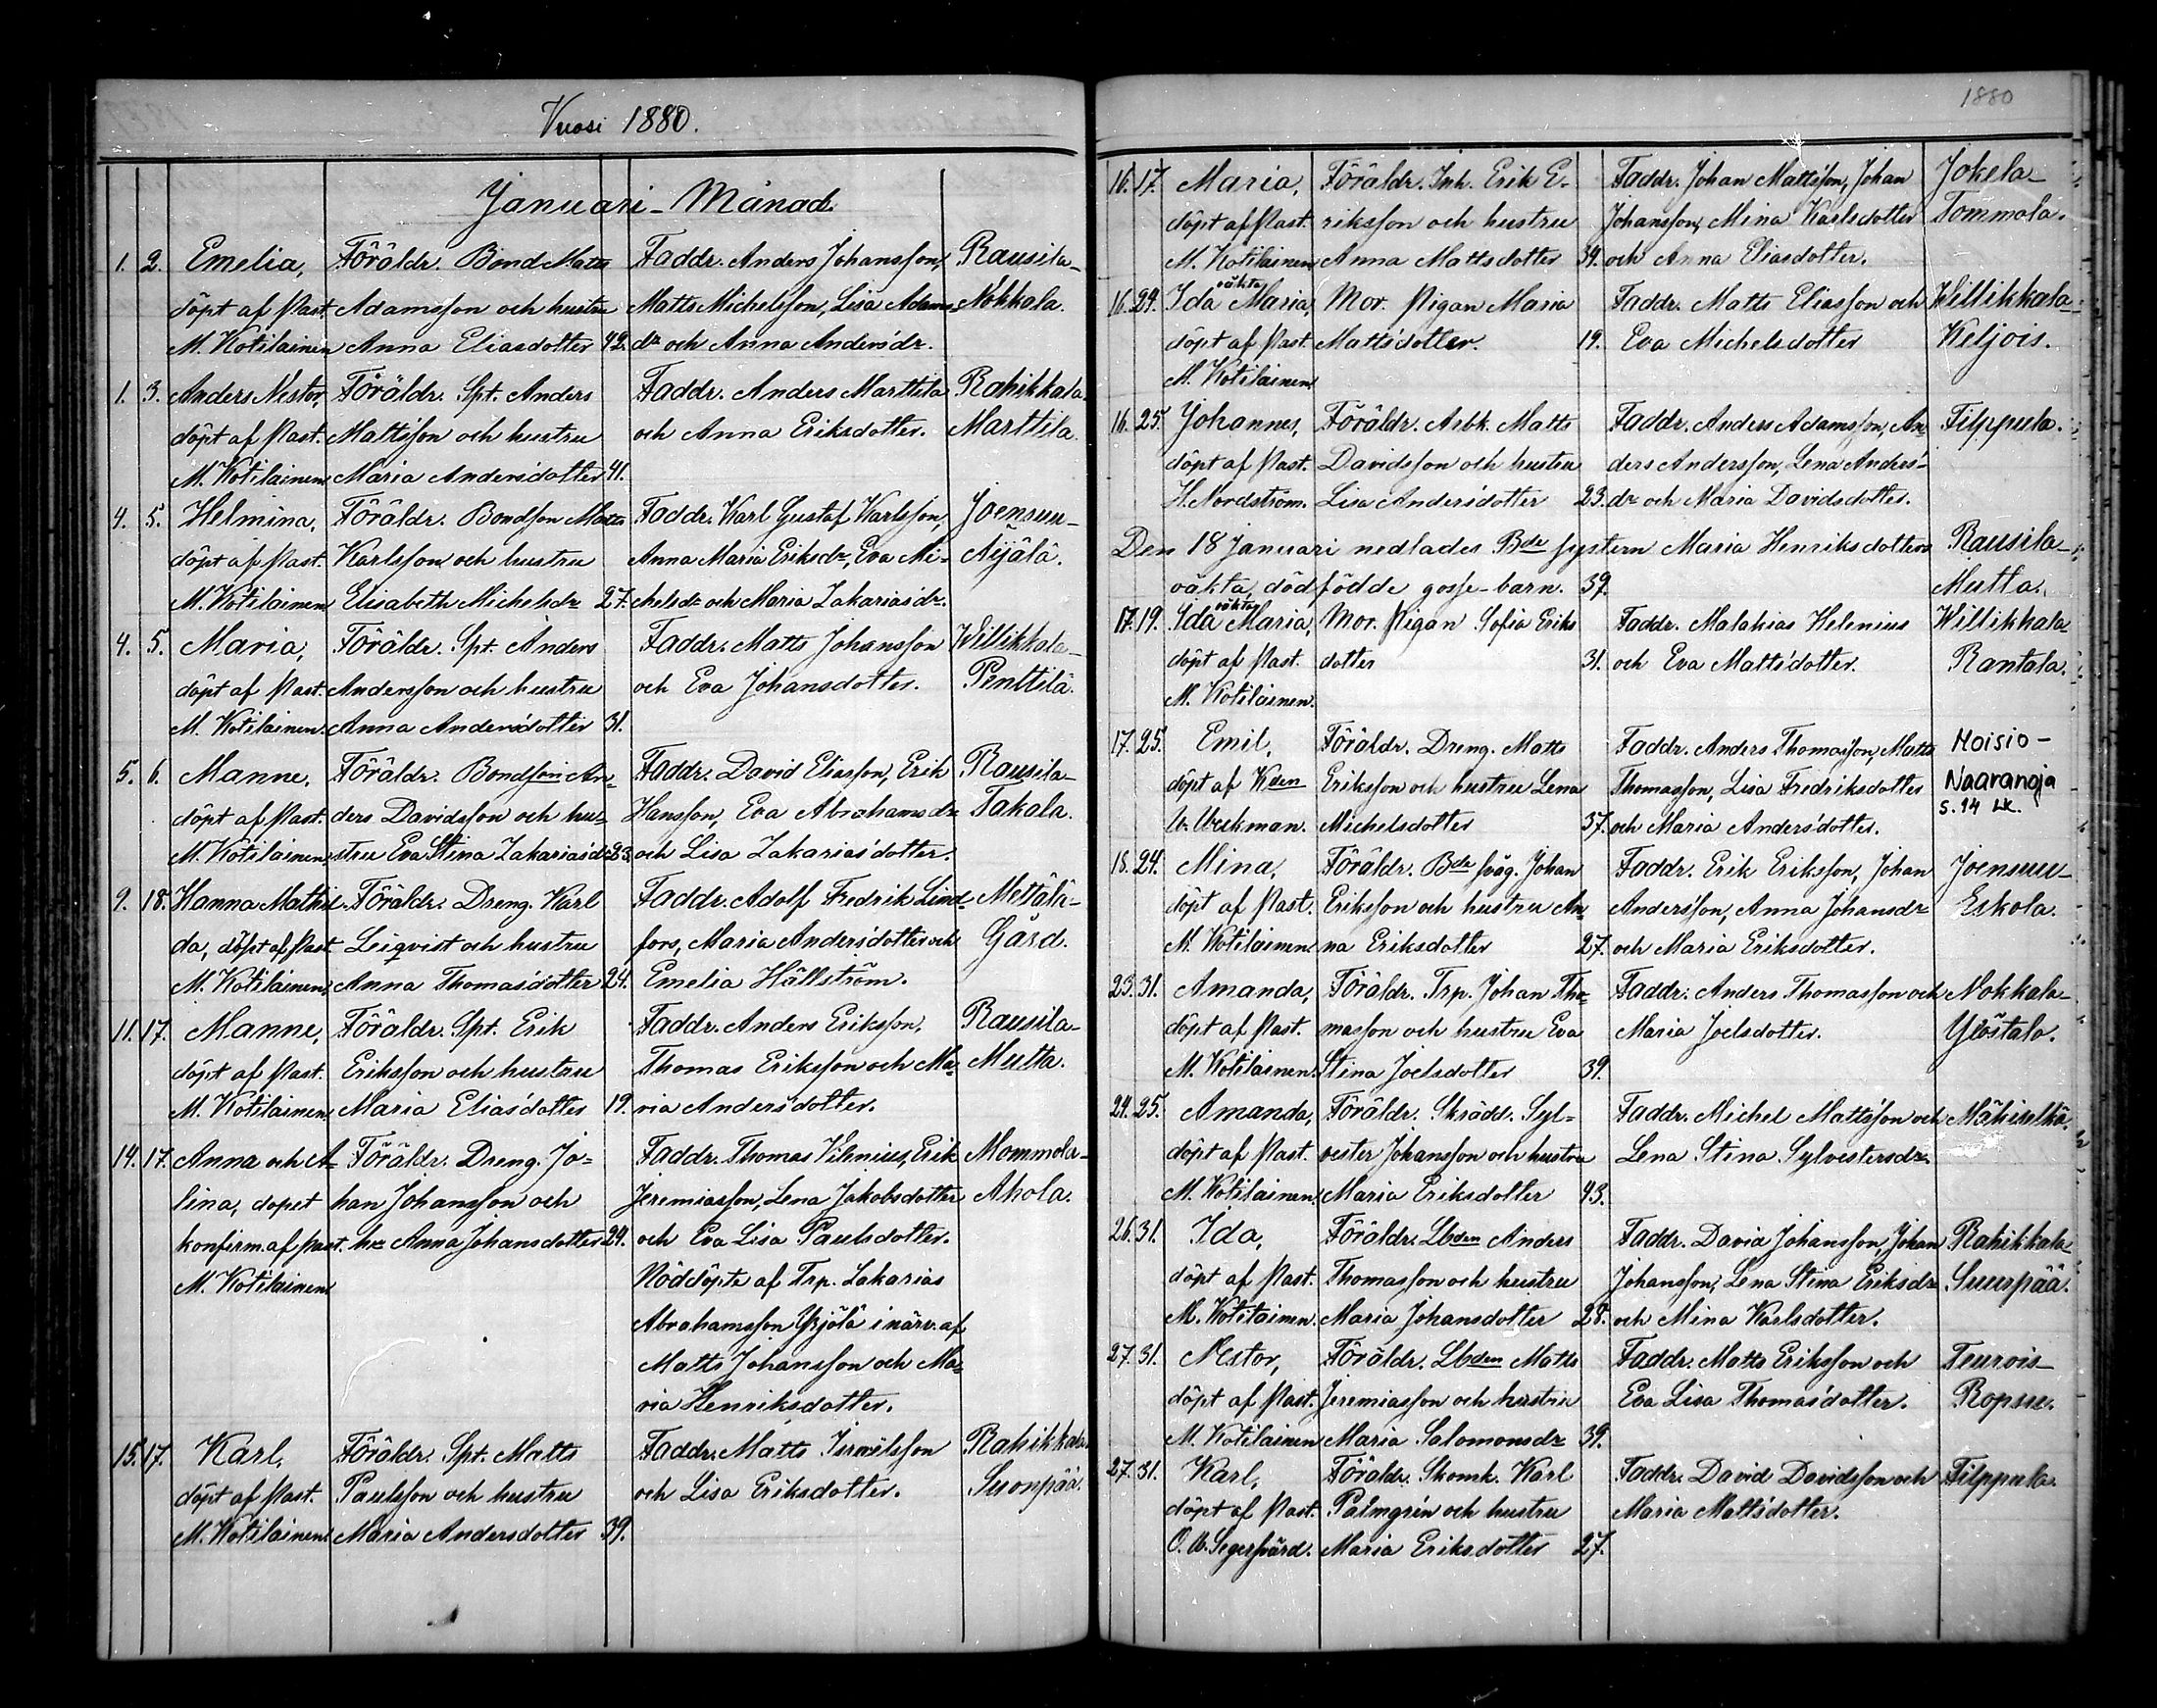 Vuosi 1880.
Januari-Månad.
1. 2. Emelia, Föräldr. Bond Matts Faddr. Anders Johansson, Rausila-
döpt af Past. Adamsson och hustru Matts Michelsson, Lisa Adams- Nokkala.
M. Kotilainen Anna Eliasdotter 42. dr och Anna Andersdr.
1. 3. Anders Nestor, Föräldr. Spt. Anders Faddr. Anders Marttila Rahikkala
döpt af Past. Mattsson och hustru och Anna Eriksdotter. Marttila.
M. Kotilainen Maria Andersdotter 41.
4. 5. Helmina, Föräldr. Bondson Matts Faddr. Karl Gustaf Karlsson, Joensuu-
döpt af Past. Karlsson och hustru Anna Maria Eriksdr, Eva Mi- Äijälä.
M. Kotilainen Elisabeth Michelsdr 27. chelsdr och Maria Zakariasdr.
4. 5. Maria, Föräldr. Spt. Anders Faddr. Matts Johansson Willikkala-
döpt af Past. Andersson och hustru och Eva Johansdotter. Penttilä.
M. Kotilainen. Anna Andersdotter 31.
5. 6. Manne, Föräldr. Bondson An- Faddr. David Eliasson, Erik Rausila-
döpt af Past. ders Davidsson och hu- Hansson, Eva Abrahamsdr Takala.
M. Kotilainen. stru Eva Stina Zakariasdr 23. och Lisa Zakariasdotter.
9. 18. Hanna Mathil- Föräldr. Dreng. Karl Faddr. Adolf Fredrik Lind- Mettälä-
da, döpt af Past. Leiqvist och hustru fors, Maria Andersdotter och Gård.
M. Kotilainen. Anna Thomasdotter 24. Emelia Hällström.
11. 17. Manne, Föräldr. Spt. Erik Faddr. Anders Eriksson, Rausila-
döpt af Past. Eriksson och hustru Thomas Eriksson och Ma- Mutta.
M. Kotilainen. Maria Eliasdotter 19. ria Andersdotter.
14. 17. Anna och A- Föräldr. Dreng. Jo- Faddr. Thomas Vilenius, Erik Mommola-
lina, dopet han Johansson och Jeremiasson, Lena Jakobsdotter Ahola.
konfirm. af Past. hr Anna Johansdotter 24. och Eva Lisa Paulsdotter.
M. Kotilainen Nöddöpte af Trp. Zakarias
Abrahamsson Yrjölä i närv. af
Matts Johansson och Ma-
ria Henriksdotter.
15. 17. Karl, Föräldr. Spt. Matts Faddr. Matts Ismelsson Rahikkala
döpt af Past. Paulsson och hustru och Lisa Eriksdotter. Suonpää.
M. Kotilainen. Maria Andersdotter 39.
1880
16. 17. Maria, Föräldr. Inh. Erik E- Faddr. Johan Mattsson, Johan Jokela-
döpt af Past. riksson och hustru Johansson, Mina Karlsdotter Tommola.
M. Kotilainen Anna Mattsdotter 34. och Anna Eliasdotter.
oäkta
16. 24. Ida Maria, Mor. Pigan Maria Faddr. Matts Eliasson och Willikkala-
döpt af Past. Mattsdotter. 19. Eva Michelsdotter Keljois.
M. Kotilainen.
16. 25. Johannes, Föräldr. Arbk. Matts Faddr. Anders Adamsson, An- Filppula.
döpt af Past. Davidsson och hustru ders Andersson, Lena Anders-
H. Nordström. Lisa Andersdotter 23. dr och Maria Davidsdotter.
Den 18 Januari nedlades Bdr system Maria Henriksdotters Rausila-
oäkta, dödfödde gosse-barn. 39. Mutta.
oäkta
17. 19. Ida Maria, Mor. Pigan Sofia Eriks Faddr. Malakias Helenius Willikkala-
döpt af Past. dotter 31. och Eva Mattsdotter. Rantala.
M. Kotilainen.
17. 25. Emil, Föräldr. Dreng. Matts Faddr. Anders Thomasson, Matts Moisio-
döpt af Kden Eriksson och hustru Lena Thomasson, Lisa Fredriksdotter Naaranoja
Michelsdotter 37. och Maria Andersdotter. S. 14 LK.
18. 24. Mina, Föräldr. Bdr svåg. Johan Faddr. Erik Eriksson, Johan Joensuu-
döpt af Past. Eriksson och hustru An- Andersson, Anna Johansdr Eskola.
M. Kotilainen. na Eriksdotter 27. och Maria Eriksdotter.
23. 31. Amanda, Föräldr. Trp. Johan Tho- Faddr. Anders Thomasson och Nokkala-
döpt af Past. masson och hustru Eva Maria Joelsdotter. Ylöstalo.
M. Kotilainen. Stina Joelsdotter 39.
24. 25. Amanda, Föräldr. Skrädd. Syl- Faddr. Michel Mattsson och Mäkiselkä.
döpt af Past. vester Johansson och hustru Lena Stina Sylvestersdr.
M. Kotilainen. Maria Eriksdotter 43.
26. 31. Ida, Föräldr. Lbden Anders Faddr. David Johansson, Johan Rahikkala-
döpt af Past. Thomasson och hustru Johansson, Lena Stina Eriksdr Suurpää.
M. Kotilainen. Maria Johansdotter 28. och Mina Karlsdotter.
27. 31. Nestor, Föräldr. Lbden Matts Faddr. Matts Eriksson och Teurois-
döpt af Past. Jeremiasson och hustru Eva Lisa Thomasdotter. Ropsu.
M. Kotilainen Maria Salomonsdr 39.
27. 31. Karl, Föräldr. Skomk. Karl Faddr. David Davidsson och Filppula.
döpt af Past. Palmgrén och hustru Maria Mattsdotter.
Segersvärd. Maria Eriksdotter 27.